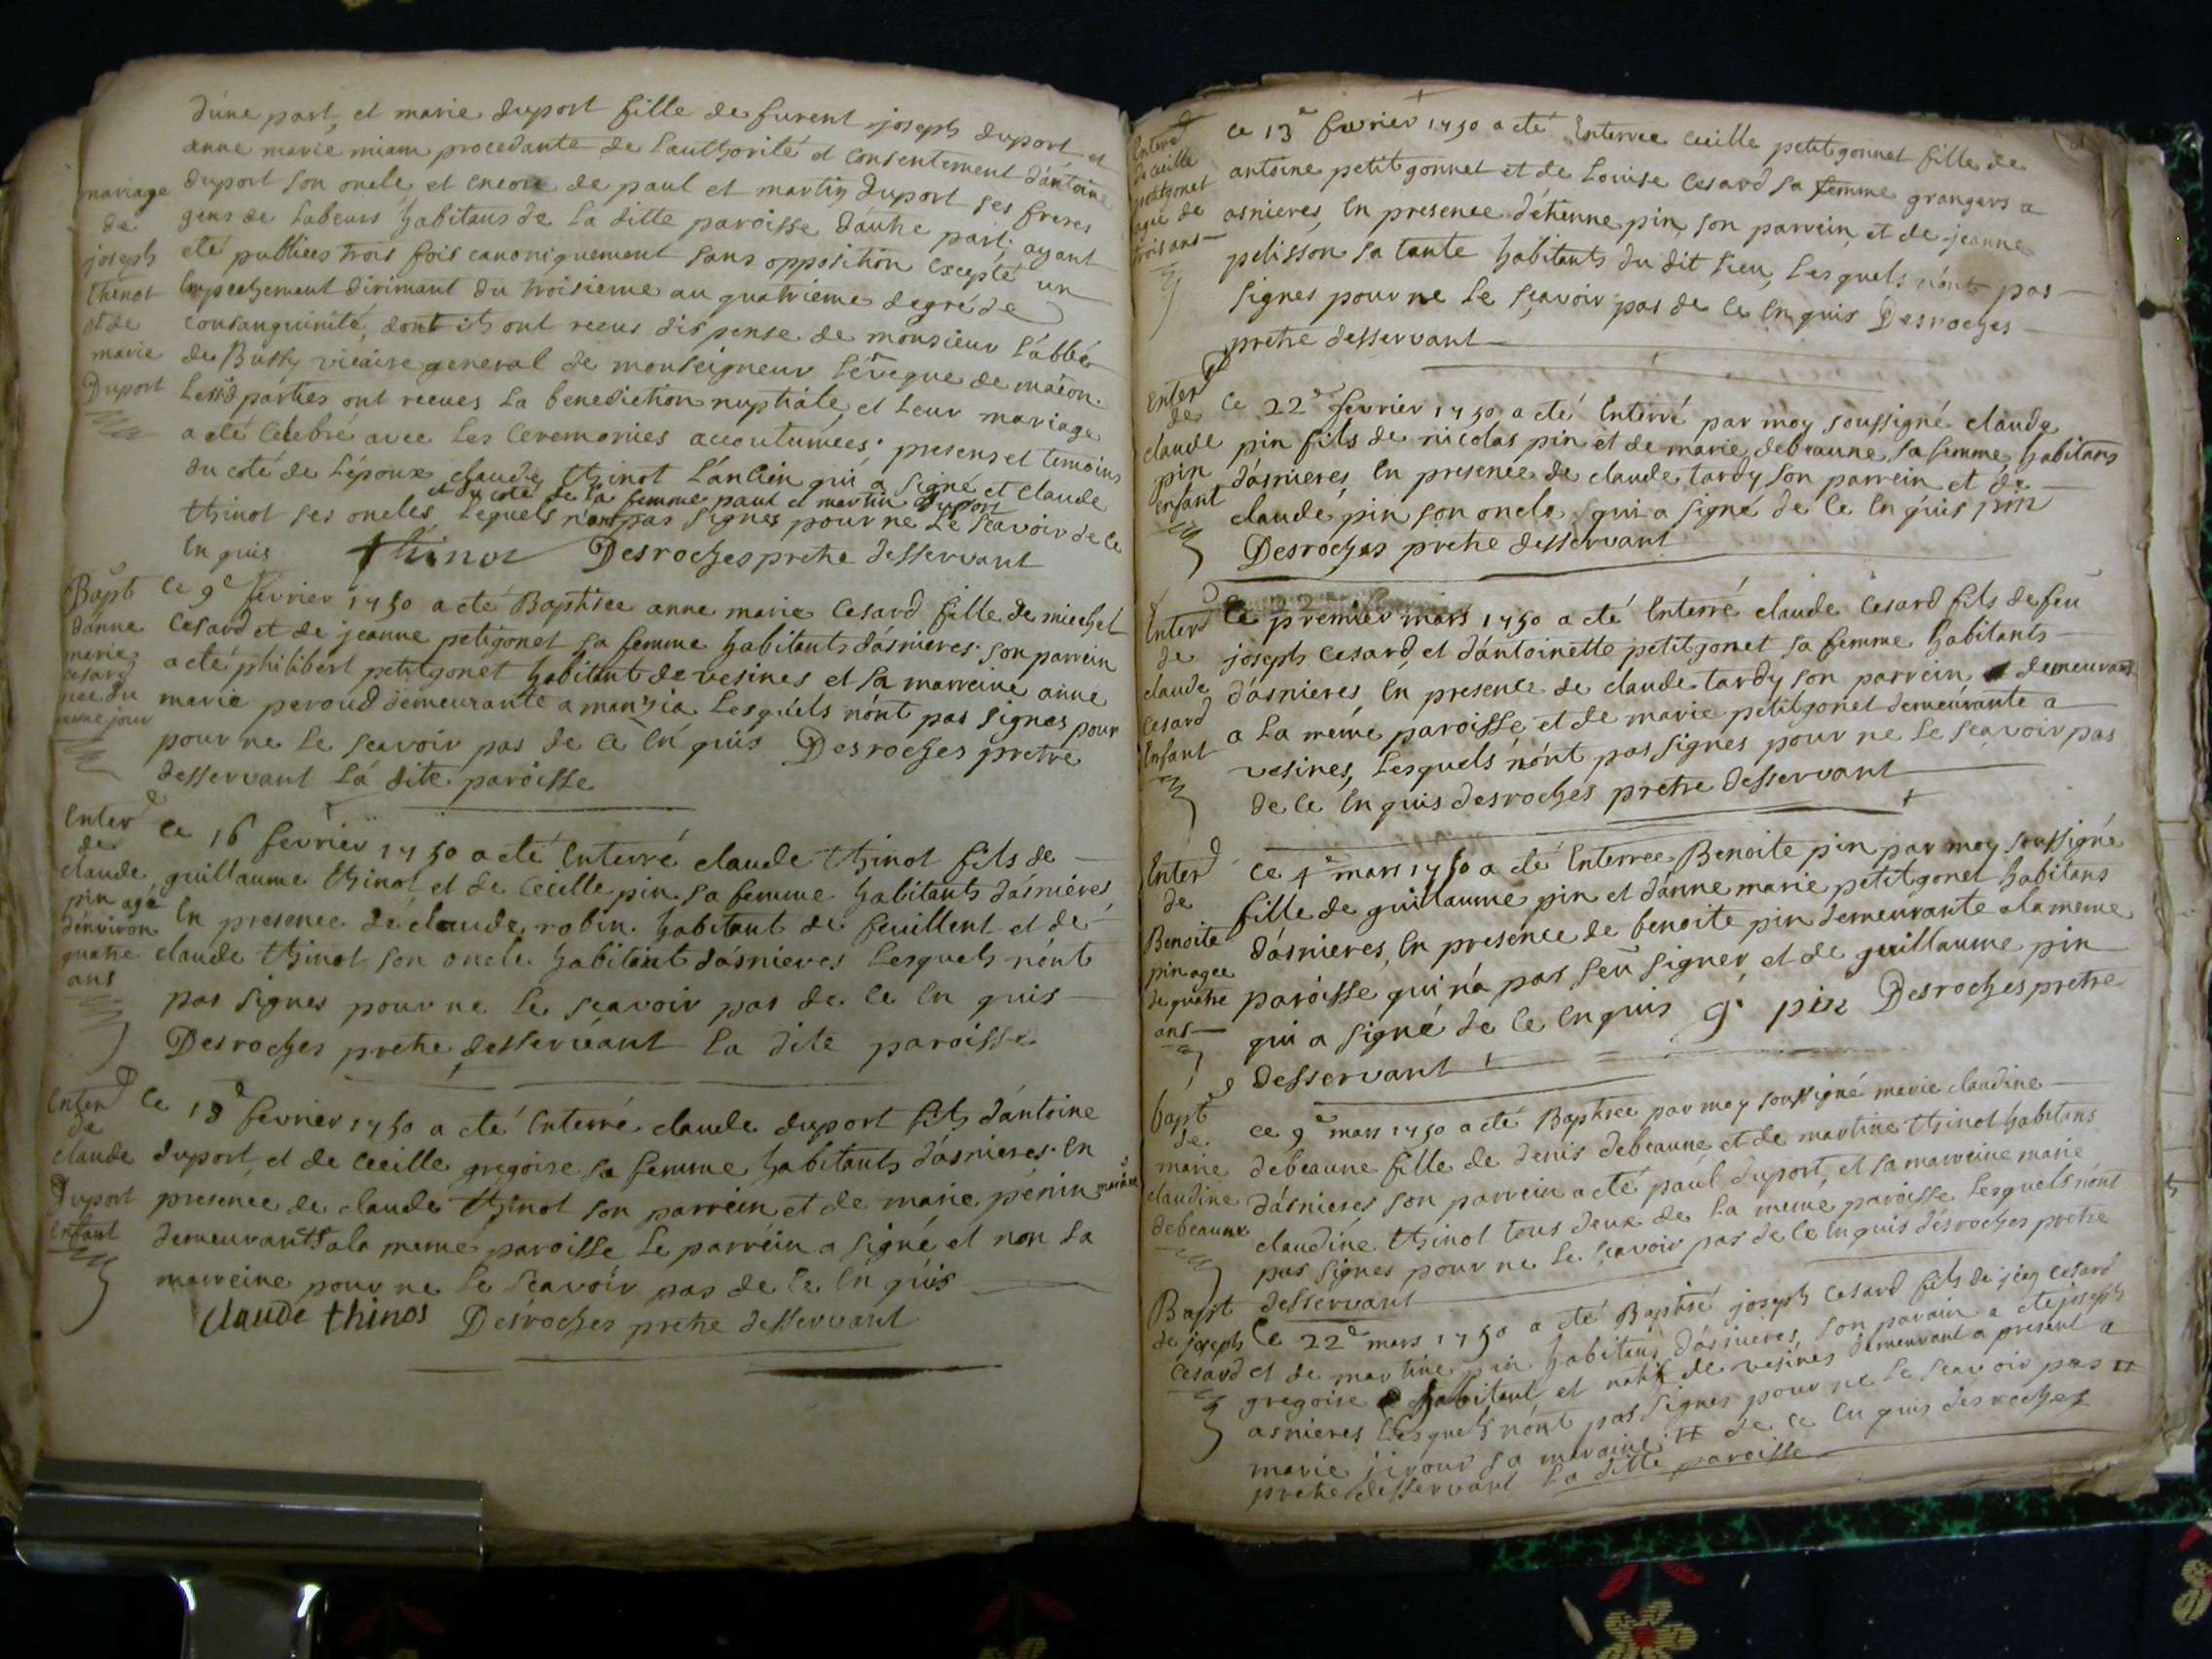 d'une part, et marie duport fille de furent joseph duport et
anne marie miam procedante de l'authorité et consentement d'antoine
duport son oncle, et encore de paul et martin duport ses freres
gens de labeurs habitans de la ditte paroisse d'autre part, ayant
eté publiées trois fois canoniquement sans opposition excepté un
empechement dirimant du troisieme au quatrieme degré de
consanguinité, dont ils ont receus dispense de monsieur l'abbé
de Bussy vicaire general de monseigneur l'évéque de macon.
lesd parties ont receues la benediction nuptiale, et leur mariage
a eté celebré avec les ceremonies accoutumées; presens et temoins
du coté de l'époux claude thinot l'ancien qui a signé et claude
et du coté de la femme paul et martin duport
thinot ses oncles lequels n'ont pas signes pour ne le scavoir de ce
enquis thinot Desroches pretre desservant
mariage
de
joseph
thinot
et de
marie
Duport
Bapt
d'anne
marie
cesard
née du
meme jour
ce 9e fevrier 1750 a eté Baptisee anne marie cesard fille de miechel
cesard et de jeanne petigonet sa femme habitants d'asnieres son parrein
a eté philibert petitgonet habitant de vesines et sa marreine anne
marie peroud demeurante a manzia lesquels n'ont pas signes pour
pour ne le scavoir pas de ce enquis Desroches pretre
desservant la dite paroisse
Enterd
de
claude
pin agé
d'environ
quatre
ans
ce 16 fevrier 1750 a eté enterré claude thinot fils de
guillaume thinot et de cecille pin sa femme habitants d'asnieres,
en presence de claude robin habitant de feuillent et de
claude thinot son oncle habitant d'asnieres lesquels n'ont
pas signes pour ne le scavoir pas de ce enquis
Desroches pretre desservant la dite paroisse
Enterd
de
claude
Duport
enfant
ce 18d fevrier 1750 a eté enterré claude duport fils d'antoine
duport, et de cecille gregoire sa femme habitants d'asnieres en
presence de claude thinot son parrein et de marie penin
demeurants a la meme paroisse le parrein a signé et non la
marreine pour ne le scavoir pas de ce enquis
claude thinos Desroches pretre desservant
Enterd
de ceille
petitgonet
agée de
trois ans
ce 13e fevrier 1750 a eté enterree ceille petitgonnet fille de
antoine petitgonnet et de Louise cesard sa femme grangers a
asnieres, en presence d'etienne pin, son parrein, et de jeanne
pelisson sa tante habitants du dit lieu, lesquels n'ont pas
signes pour ne le sçavoir pas de ce enquis Desroches
pretre desservant
Enterd
de
claude
pin
enfant
ce 22e fevrier 1750 a eté enterré par moy soussigné claude
pin fils de nicolas pin et de marie debeaune, sa femme, habitans
d'asnieres, en presence de claude tardy son parrein et de
claude pin son oncle qui a signé de ce enquis pin
Desroches pretre desservant
Enterd
de
claude
cesard
enfant
Ce premier mars 1750 a eté enterré claude cesard fils de feu
joseph cesard, et d'antoinette petitgonet sa femme habitants
d'asnieres, en presence de claude tardy son parrein demeurant
a la méme paroisse, et de marie petitgonet demeurante a
vesines, lesquels n'ont pas signes pour ne le sçavoir pas
de ce enquis desroches pretre desservant
Enterd
de
Benoite
pin agee
de quatre
ans
ce 4e mars 1750 a eté enterree Benoite pin par moy soussigné
fille de guillaume pin et d'anne marie petitgonet habitans
d'asnieres, en presence de benoite pin demeurante a la meme
paroisse qui n'a pas sçu signer, et de guillaume pin
qui a signé de ce enquis g. pin Desroches pretre
desservant
bapt
de
marie
claudine
debeaune
ce 9e mars 1750 a eté Baptisee par moy soussigné marie claudine
debeaune fille de denis debeaune et de martine thinot habitans
d'asnieres son parrein a eté paul duport, et sa marreine marie
claudine thinot tous deux de la meme paroisse lesquels n'ont
pas signes pour ne le sçavoir pas de ce enquis desroches pretre
desservant
Bapt
de joseph
cesard
Ce 22e mars 1750 a eté Baptisé joseph cesard fils de jean cesard
et de martine pin habitans d'asnieres, son parain a eté joseph
gregoire habitant et natif de vesines demeurant a present a
asnieres lesquels n'ont pas signes pour ne le scavoir pas #
marie sa maraine # de ce enquis desroches
pretre desservant la ditte paroisse